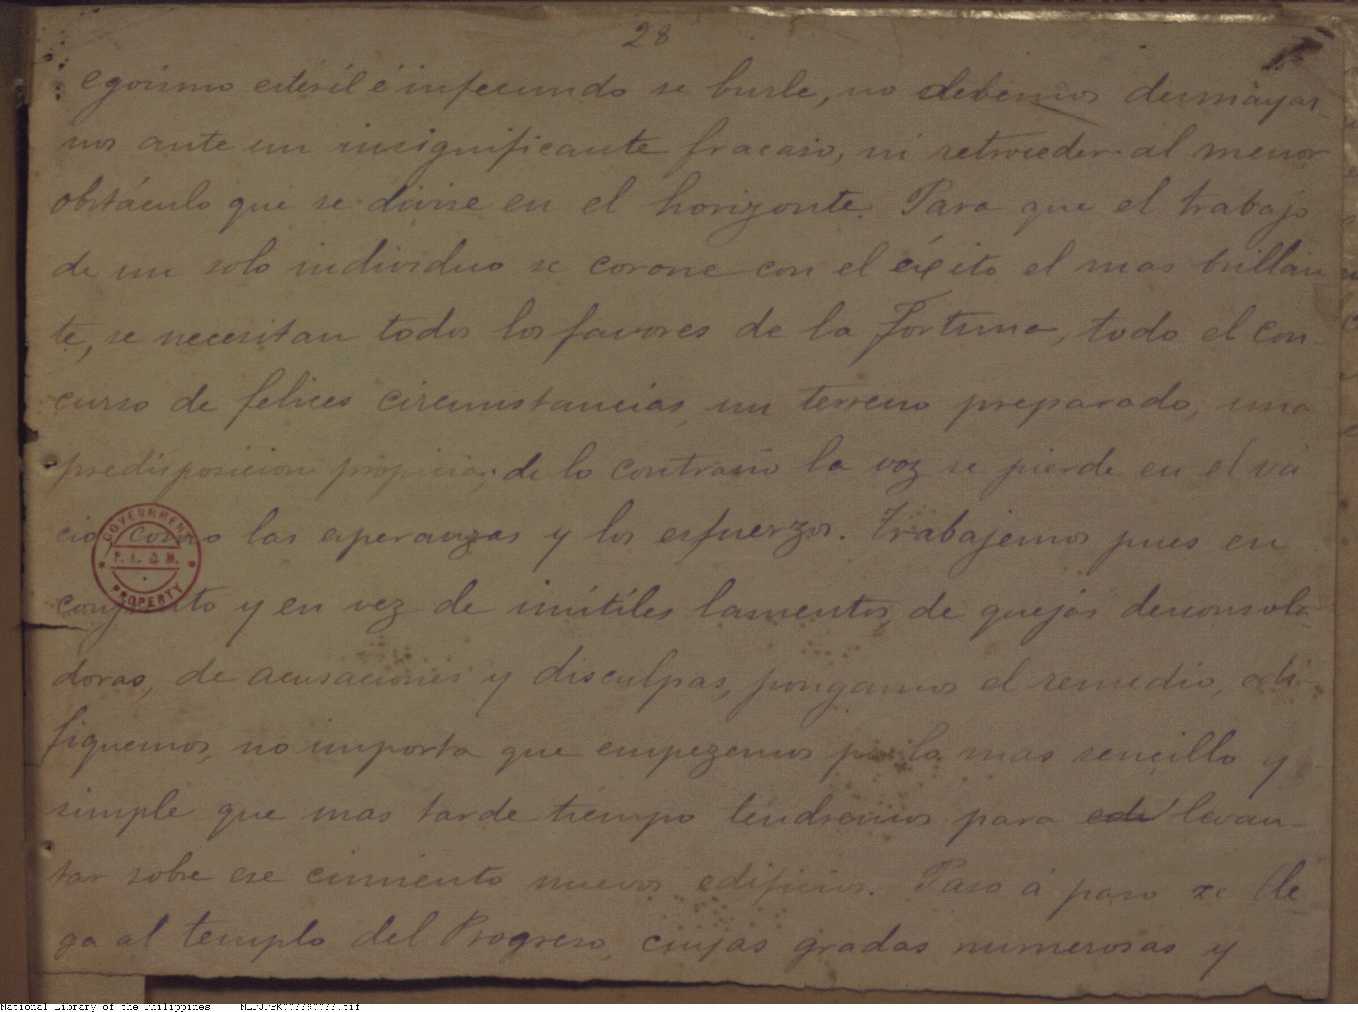 28
egoismo estéril é infecundo se burle, no debemos desmayar-
nos ante un insignificante fracaso, ni retroceder al menor
obstáculo que se divise en el horizonte. Para que el trabajo
de un solo individuo se corone con el éxito el mas brillan
te, se necesitan todos los favores de la Fortuna, todo el con-
curso de felices circunstancias, un terreno preparado, una
predisposicion propicia; de lo contrario la voz se pierde en el va
cio como las esperanzas y los esfuerzos. Trabajemos pues en
conjunto y en vez de inútiles lamentos, de quejas desconsola-
doras, de acusaciones y disculpas, pongamos el remedio, edi-
fiquemos, no importa que empezemos por lo mas sencillo y
simple que mas tarde tiempo tendremos para edi levan-
tar sobre ese cimiento nuevos edificios. Paso á paso se lle-
ga al templo del Progreso, cuyas gradas numerosas y
GOVERNMENT
PROPERTY
National Library of the Philippines